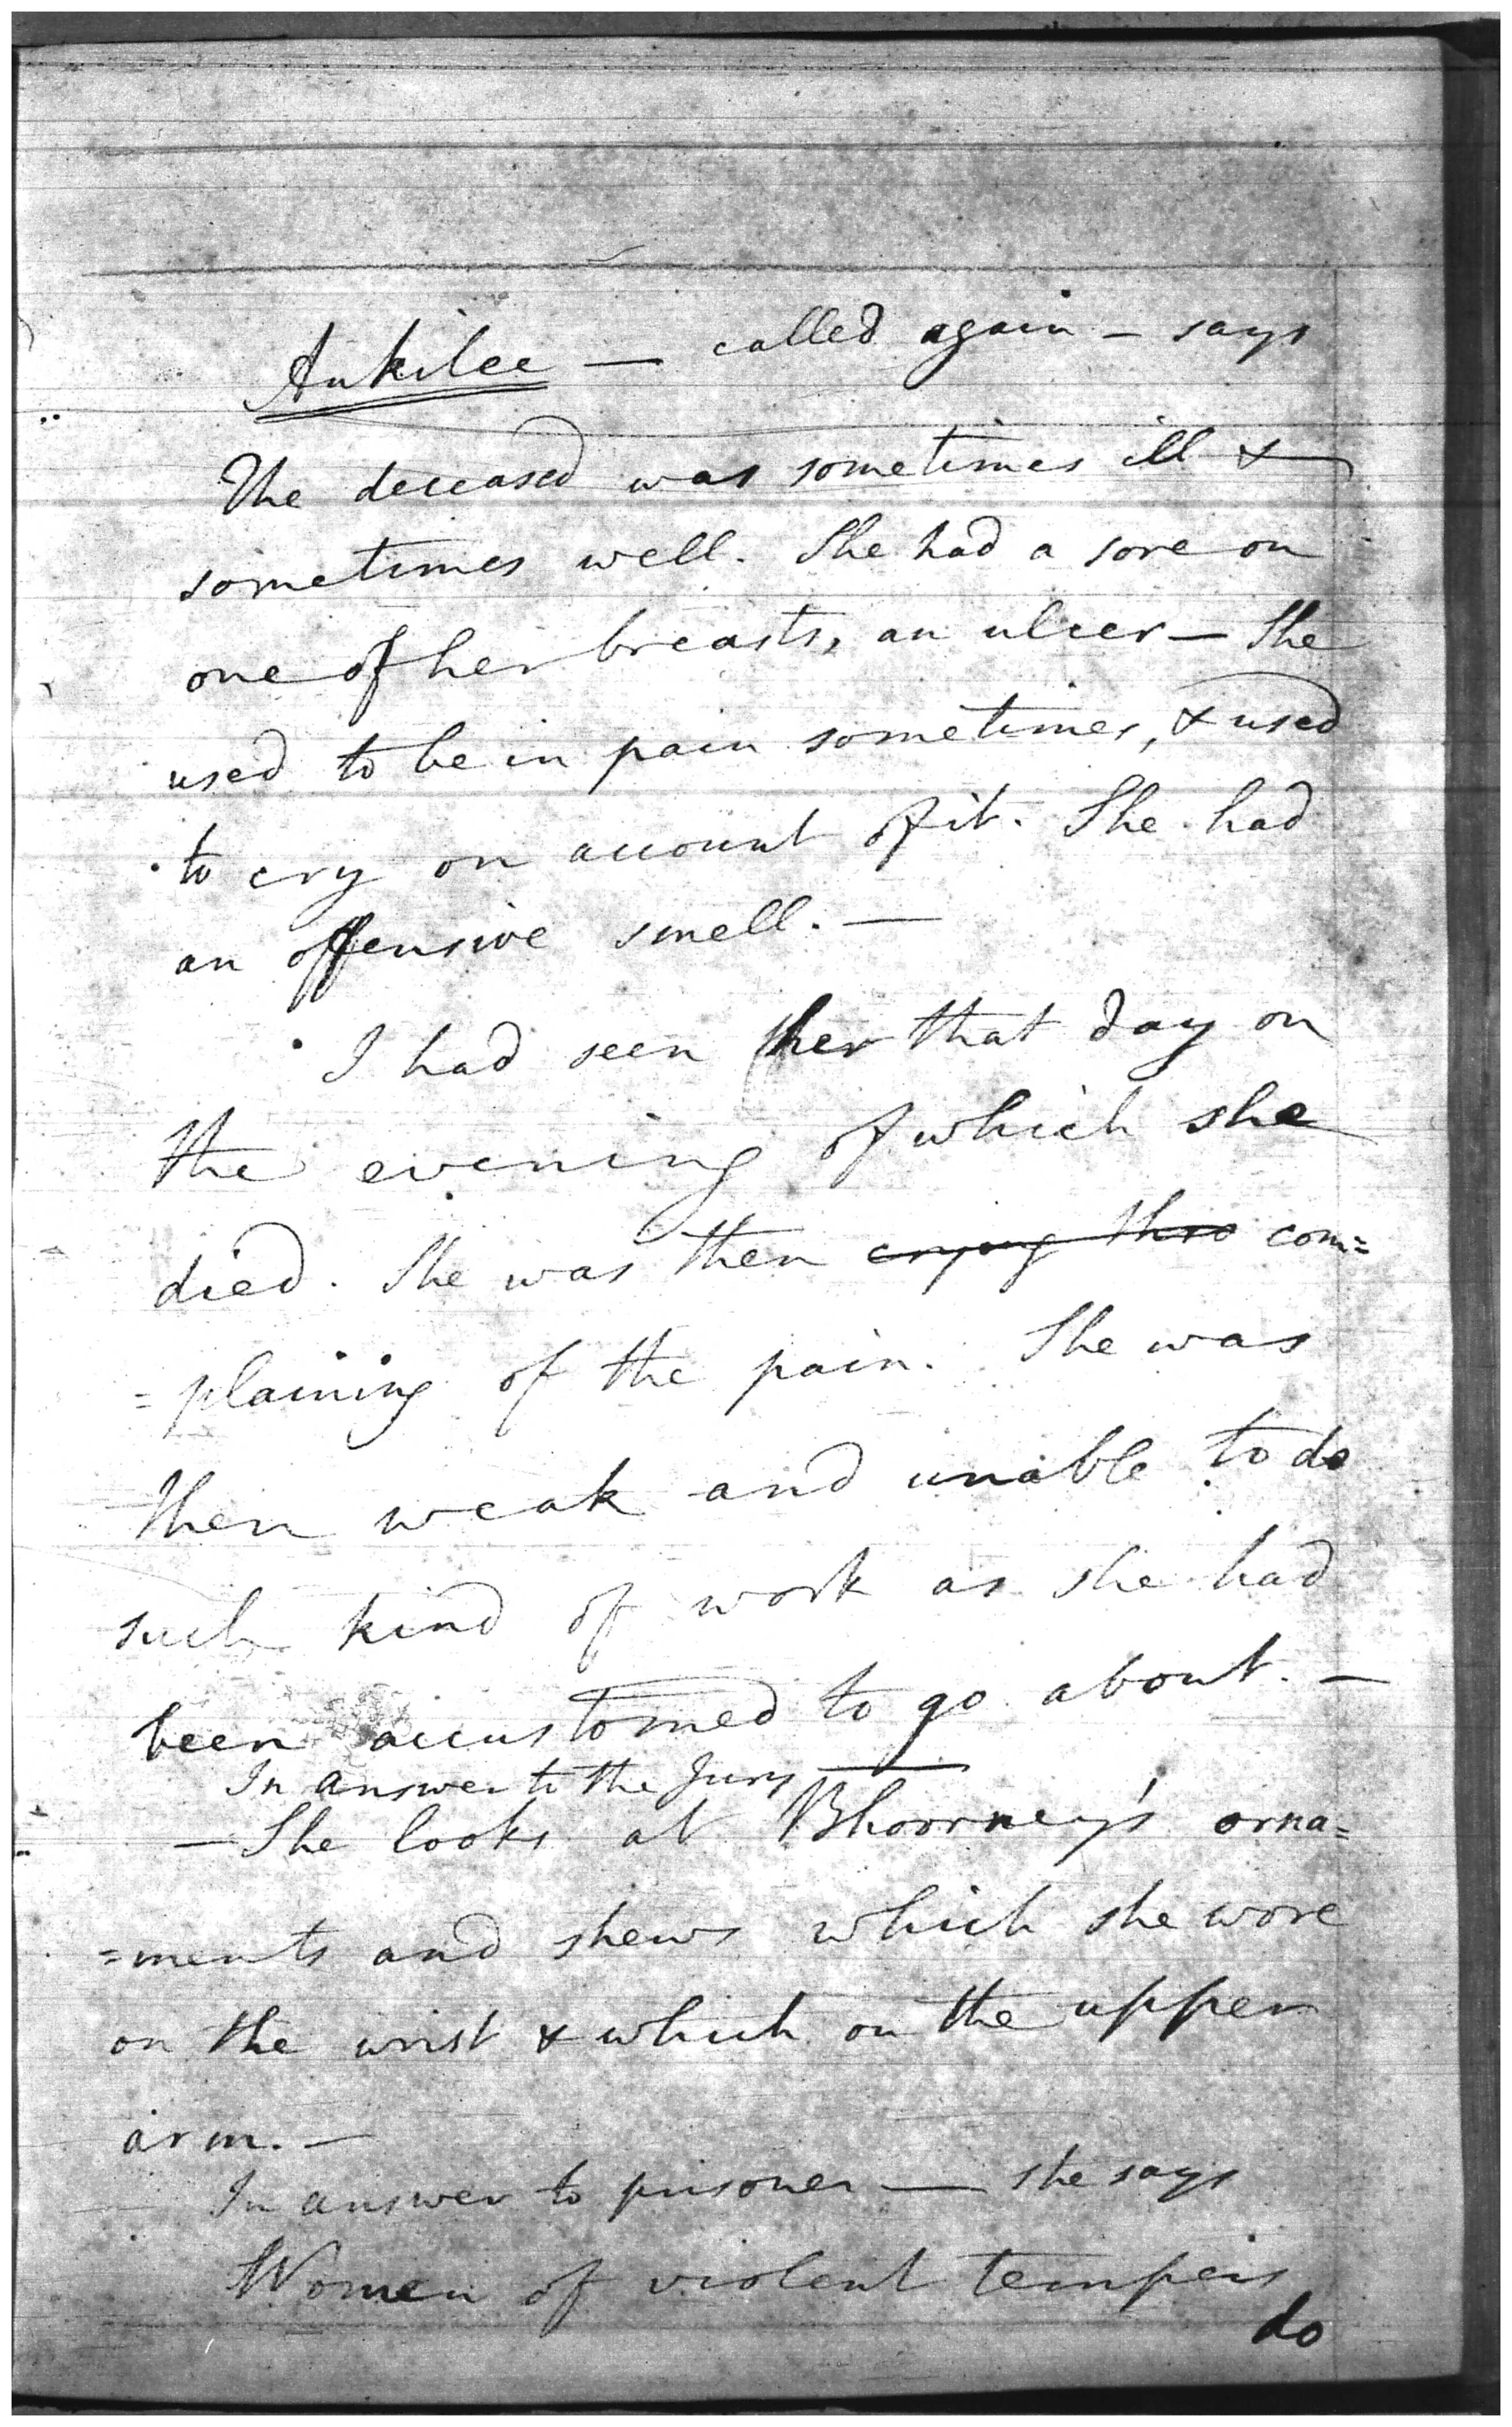 Ankilee — called again — says
The deceased was sometimes ill &
sometimes well. She had a sore on
one of her breasts, an ulcer — She
used to be in pain sometimes, & used
to cry on account of it. She had
an offensive smell. —
I had seen her that day on
the evening of which she
died. She was then crying thro com=
=plaining of the pain. She was
then weak and unable to do
such kind of work as she had
been accustomed to go about. —
In answer to the Jury —
— She looks at Bhoorney's orna=
=ments and shews which she wore
on the wrist & which on the upper
arm. —
In answer to prisoner — she says
Women of violent tempers
do